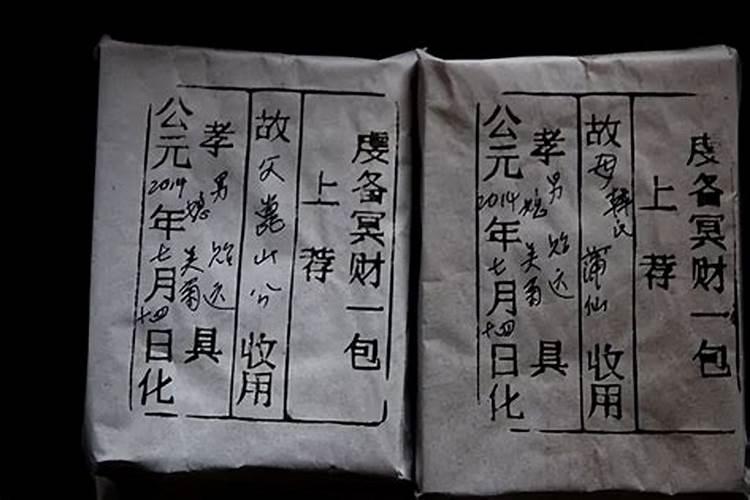 虔备冥财一包
上荐
故父嵩山公收用
孝男贻远
媳美菊具
公元2014年七月十四日化
虔备冥财一包
上荐
故母韩氏蒲仙收用
孝男贻远
媳美菊具
公元2014年七月十四日化